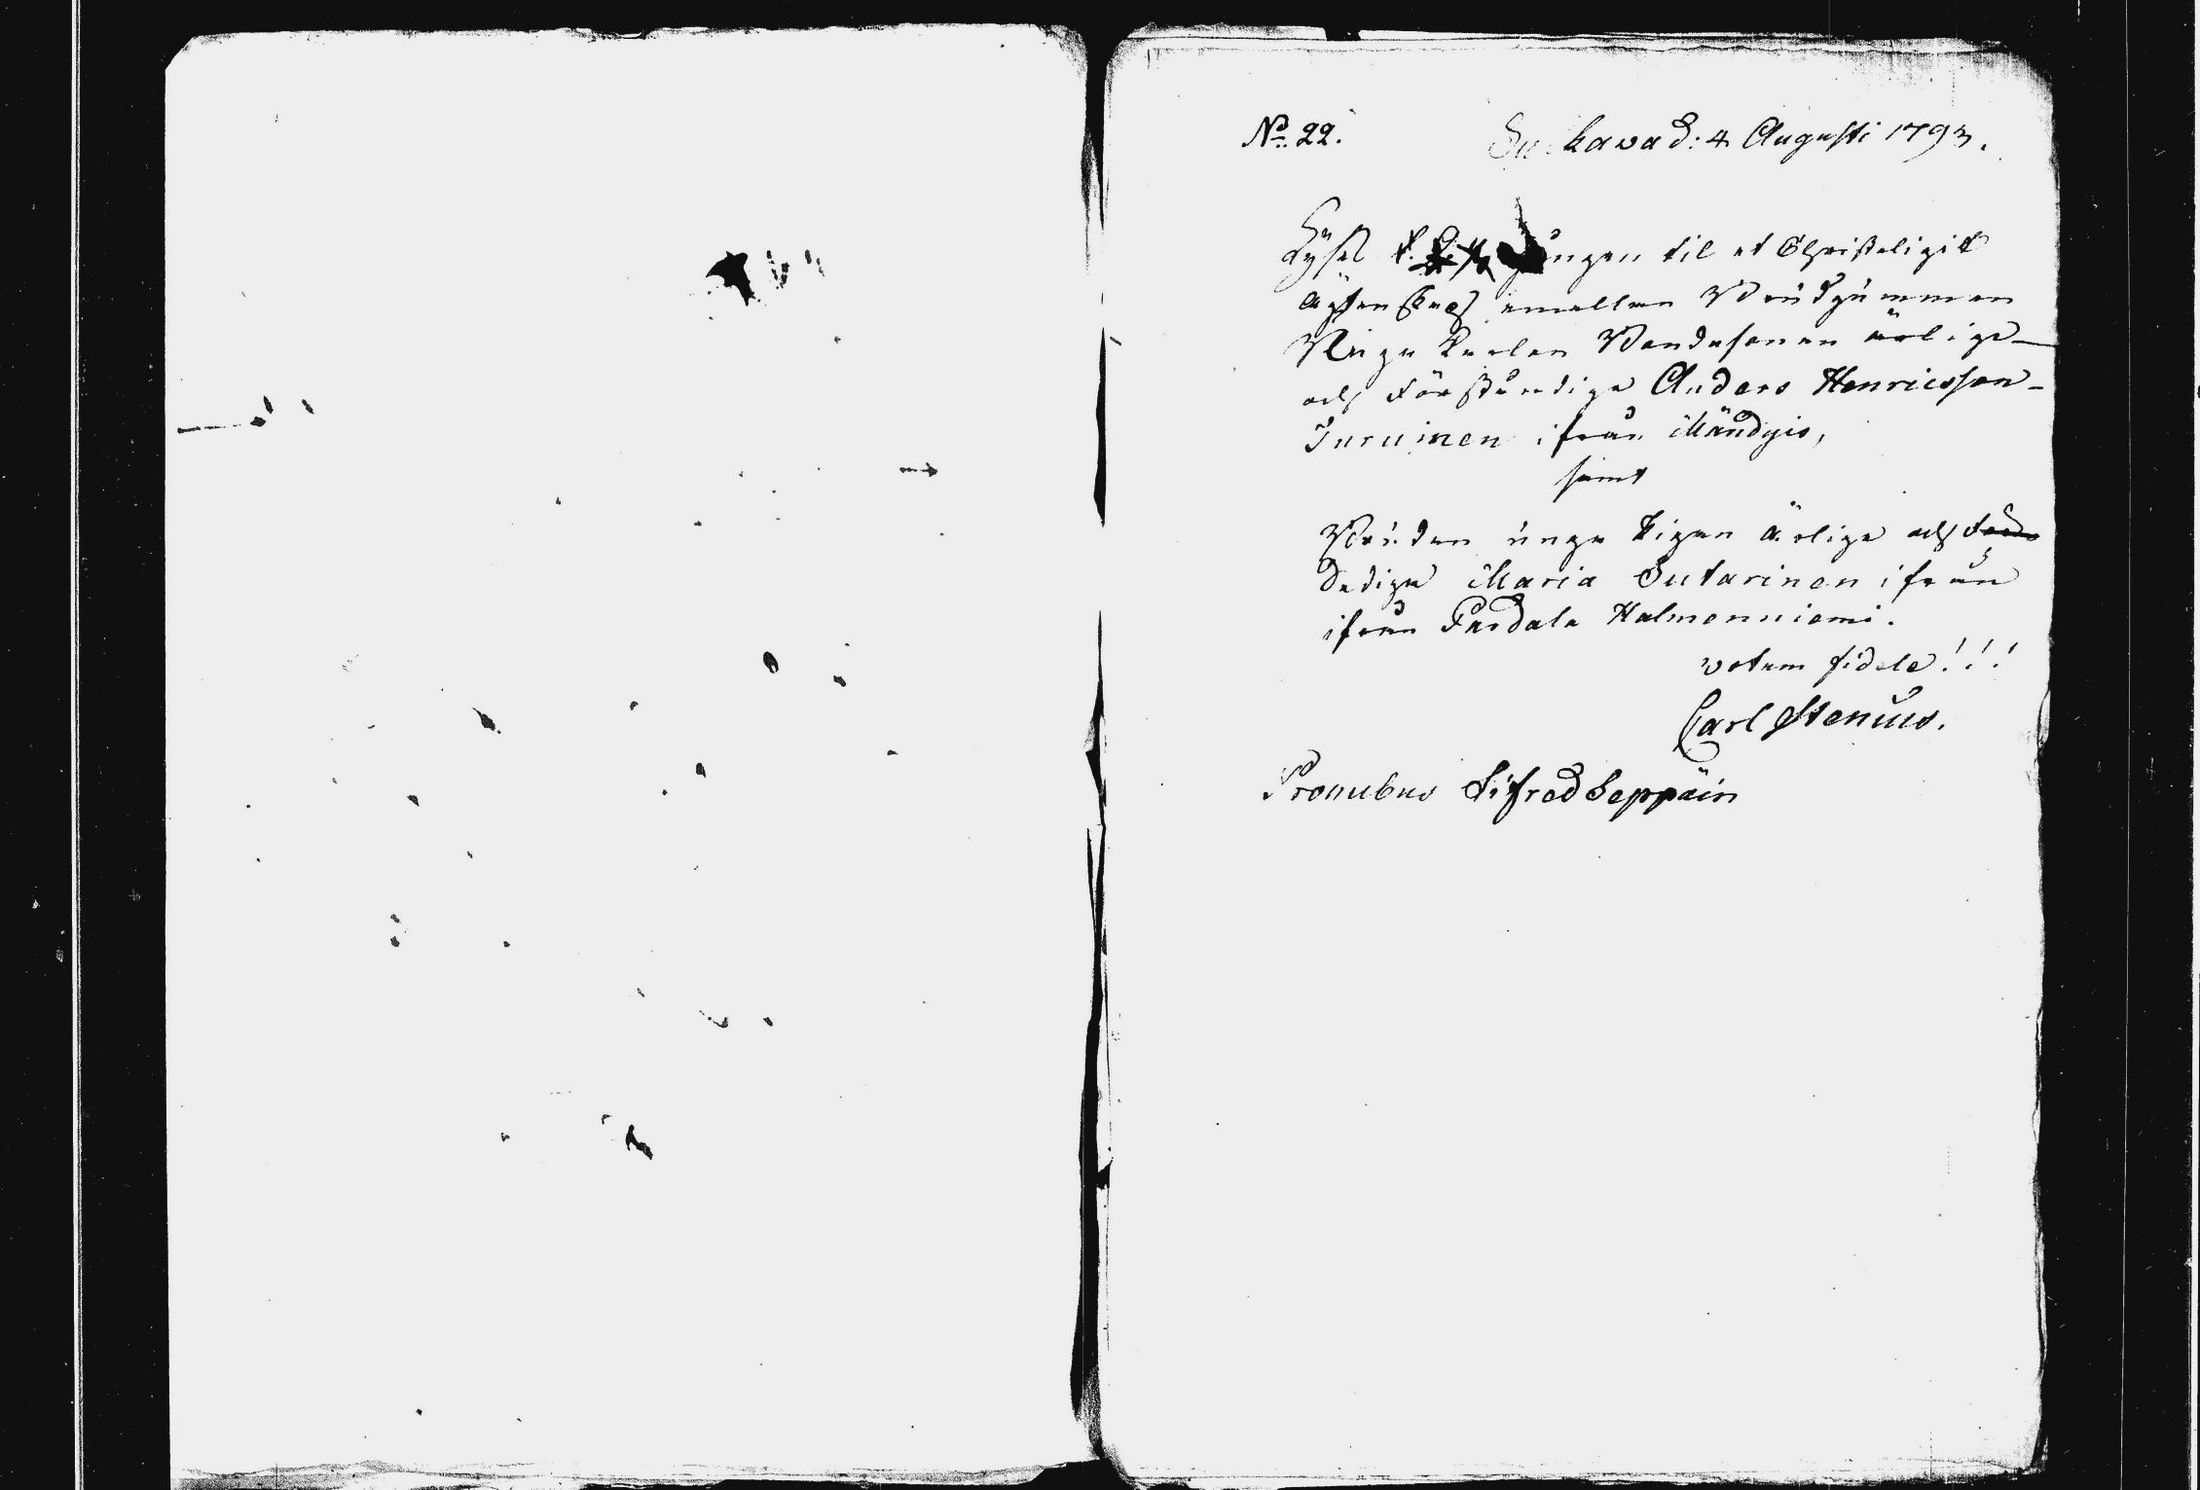 No 22. d: 4 Augusti 1793.
Lyses gången til et Christeligit
Ägtenskap emellan Brudgummen
Unga Karlen Bondesonen ärlige
och Förståndige Anders Henricsson
Turuinen ifrån Mändyis,
samt
Bruden unga Pigan ärliga och
Dediga Maria Sutarinen ifrån
ifrån Pardala Halmenniemi.
votum fidele!!!
Carl Stenius.
Pronubus Sifred Seppäin